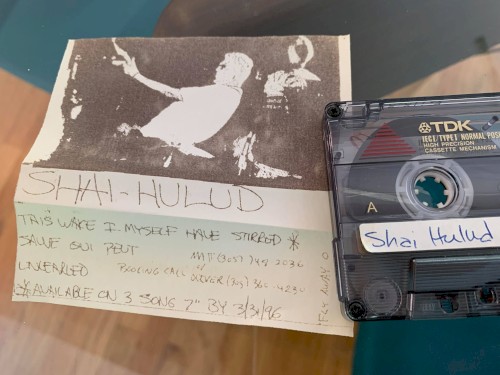 SHAI-HULUD
THIS WAKE I MYSELF HAVE STIRRED *
SAUVE QUI PEUT
UNVEARLED
MATT (305)
BOOKING CALL OLIVER
*AVAILABLE ON 3 SONG 7" BY 3/31/96
TDK
IEC I/TYPE I NORMAL POSI
HIGH PRECISION
CASSETTE MECHANISM
A
Shai Hulud